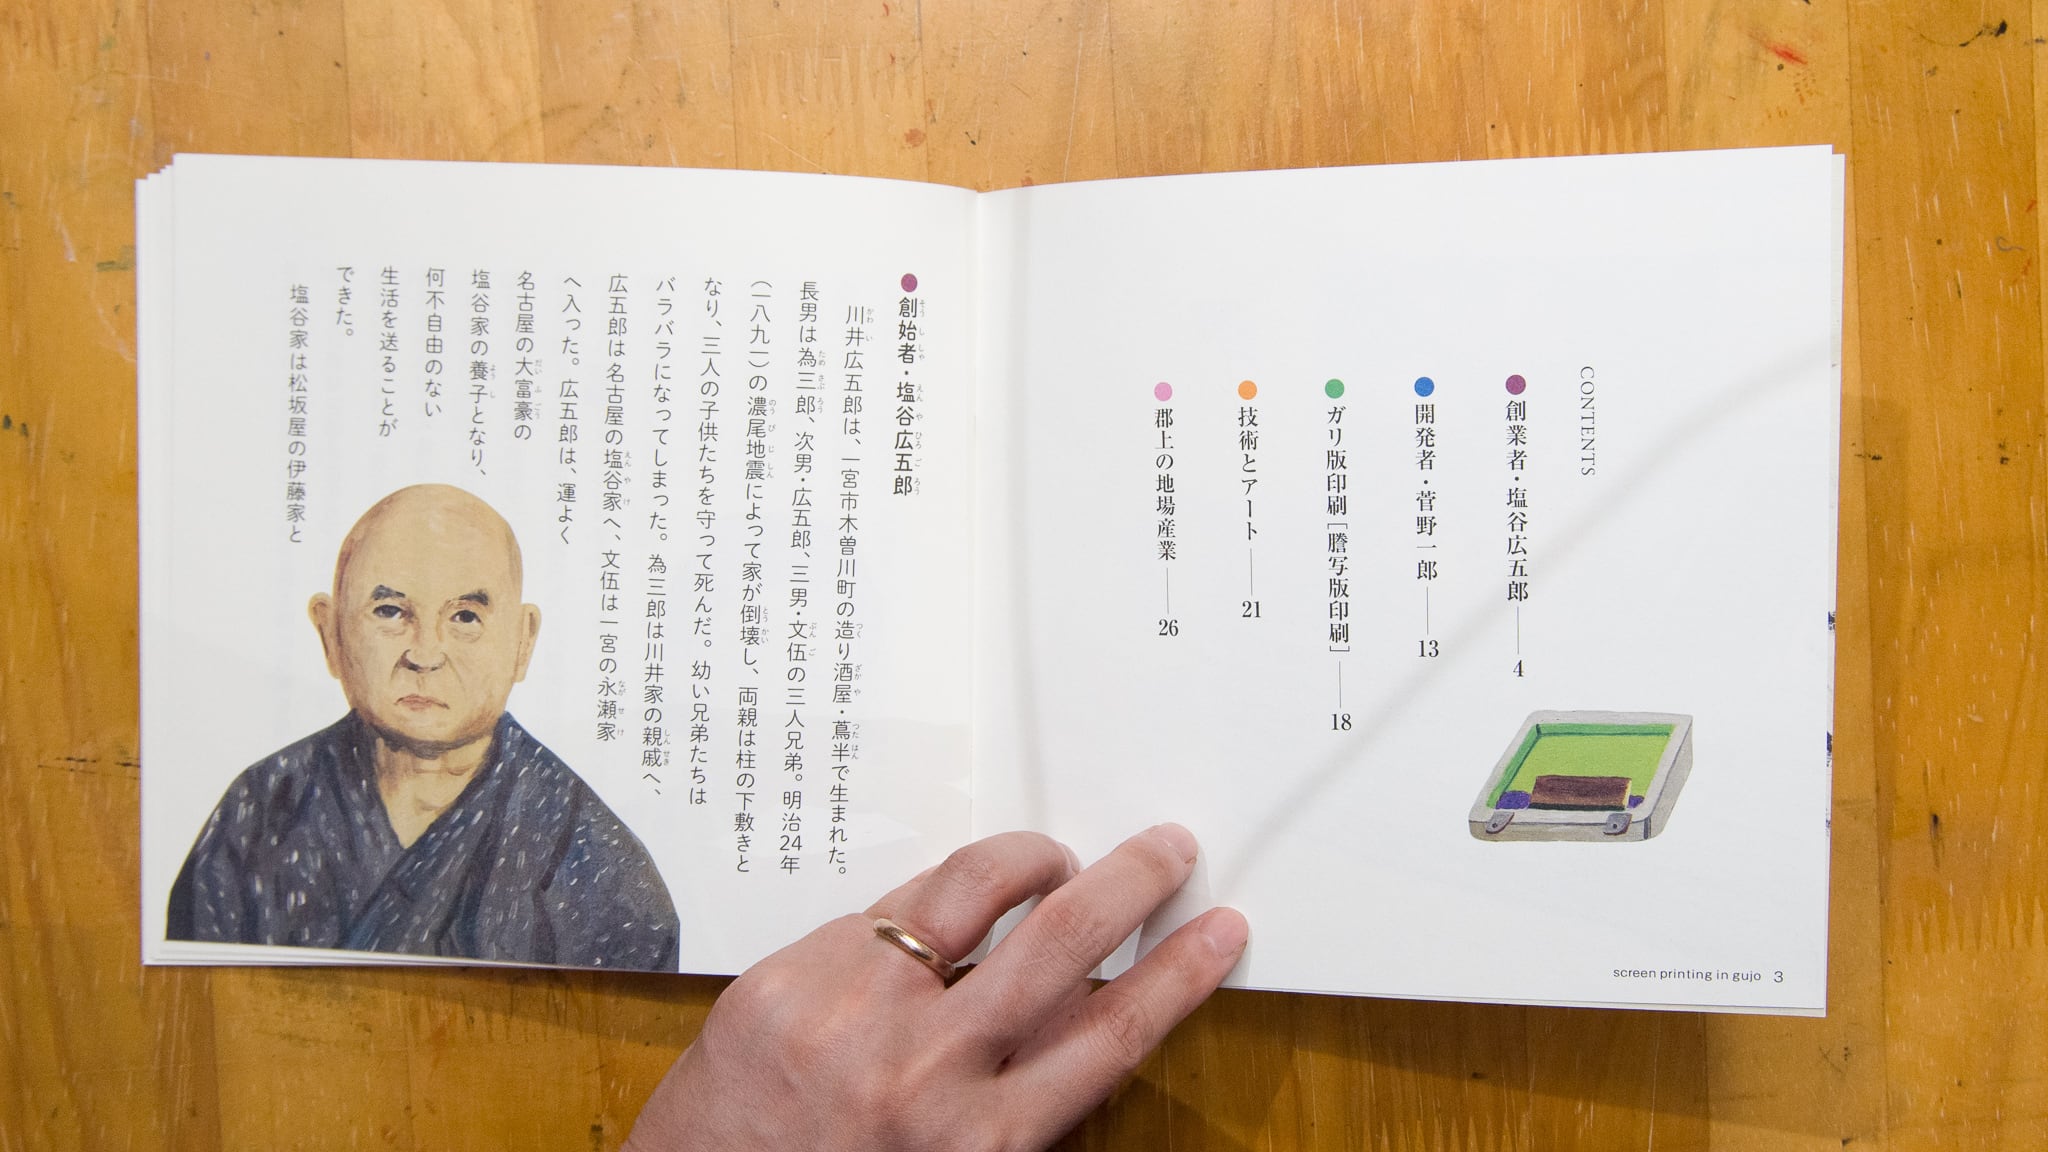 CONTENTS
創業者・塩谷広五郎——4
開発者・菅野一郎——13
ガリ版印刷[謄写版印刷]——18
技術とアート——21
郡上の地場産業——26
screen printing in gujo 3
創始者・塩谷広五郎
川井広五郎は、一宮市木曽川町の造り酒屋・蔦半で生まれた。
長男は為三郎、次男・広五郎、三男・文伍の三人兄弟。明治24年
(一八九一)の濃尾地震によって家が倒壊し、両親は柱の下敷きと
なり、三人の子供たちを守って死んだ。幼い兄弟たちは
バラバラになってしまった。為三郎は川井家の親戚へ、
広五郎は名古屋の塩谷家へ、文伍は一宮の永瀬家
へ入った。広五郎は、運よく
名古屋の大富豪の
塩谷家の養子となり、
何不自由のない
生活を送ることが
できた。
塩谷家は松坂屋の伊藤家と